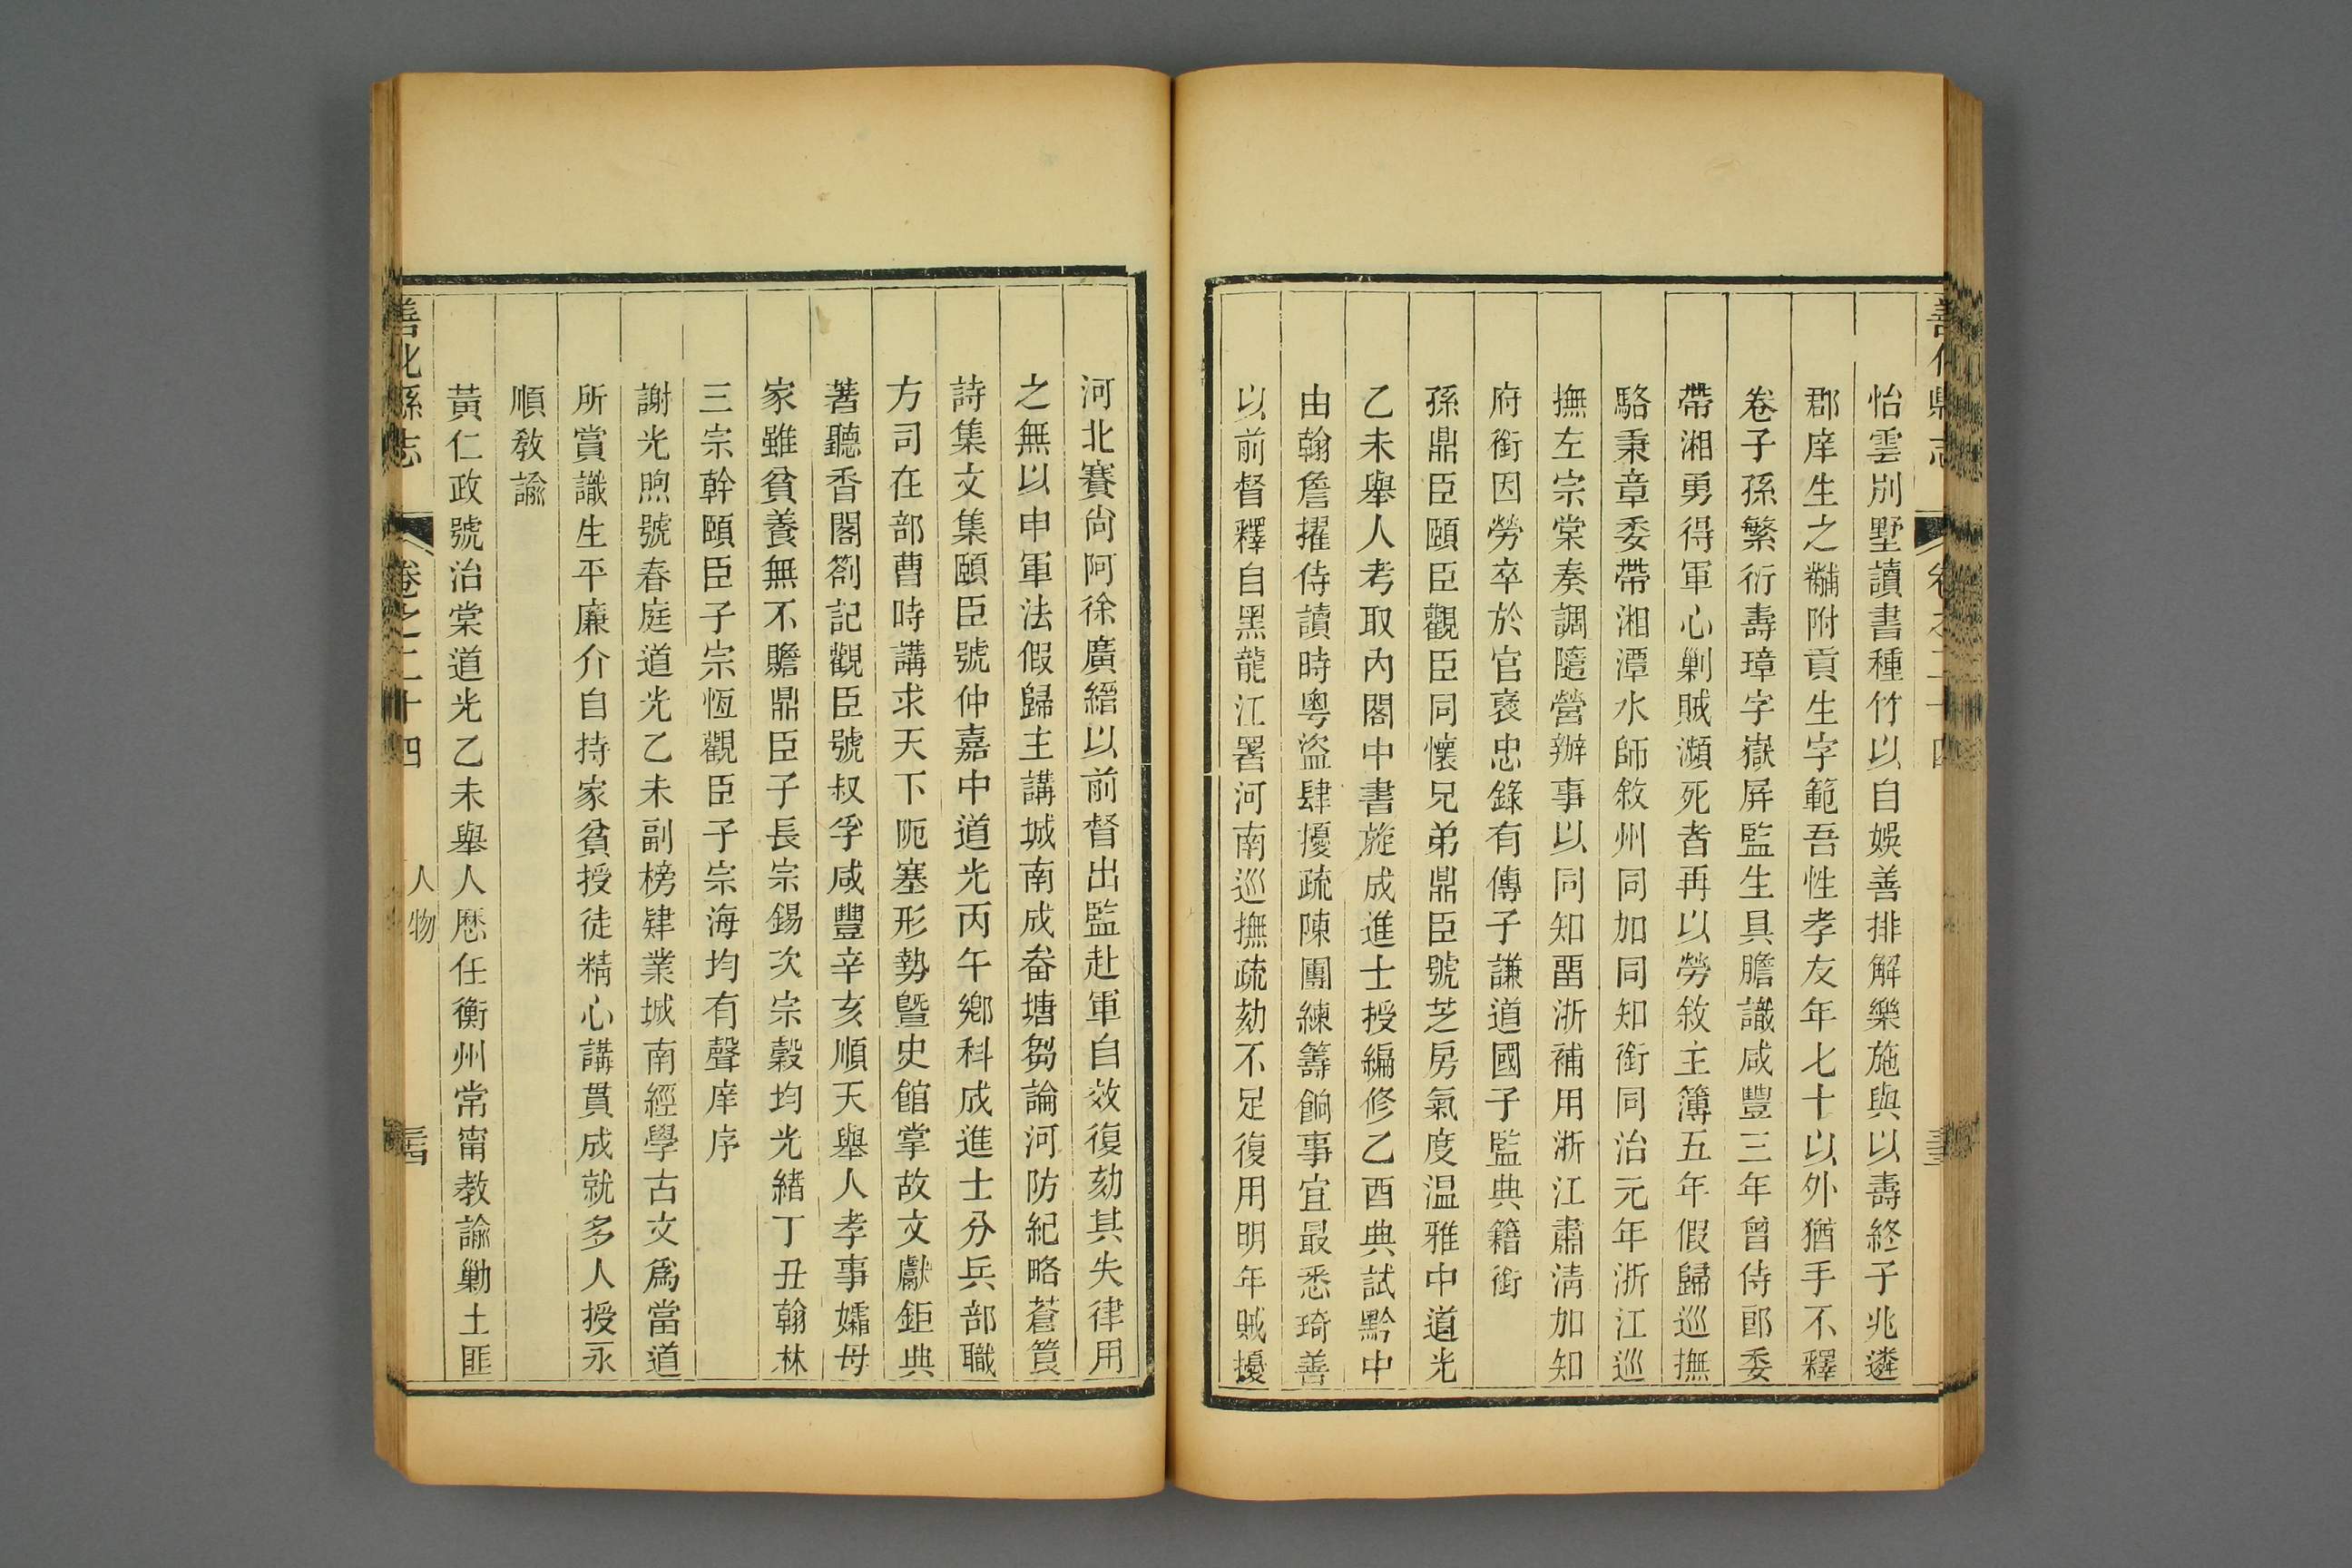 怡雲別墅讀書種竹以自娛善排解樂施與以壽終子兆遴
郡庠生之黼附貢生字範吾性孝友年七十以外猶手不釋
卷子孫繁衍壽璋字嶽屏監生具膽識咸豐三年曾侍郎委
帶湘勇得軍心剿賊瀕死者再以勞敘主簿五年假歸巡撫
駱秉章委帶湘潭水師敘州同加同知銜同治元年浙江巡
撫左宗棠奏調隨營辦事以同知畱浙補用浙江肅清加知
府銜因勞卒於官褒忠錄有傳子謙道國子監典籍銜
孫鼎臣頤臣觀臣同懷兄弟鼎臣號芝房氣度温雅中道光
乙未舉人考取内閣中書旋成進士授編修乙酉典試黔中
由翰詹擢侍讀時粵盜肆擾疏陳團練籌餉事宜最悉琦善
以前督釋自黑龍江署河南巡撫疏劾不足復用明年賊擾
河北賽尙阿徐廣縉以前督出監赴軍自效復劾其失律用
之無以申軍法假歸主講城南成畚塘芻論河防紀略蒼筤
詩集文集頤臣號仲嘉中道光丙午鄉科成進士分兵部職
方司在部曹時講求天下阨塞形勢曁史館掌故文獻鉅典
著聽香閣劄記觀臣號叔孚咸豐辛亥順天舉人孝事孀母
家雖貧養無不贍鼎臣子長宗錫次宗穀均光緒丁丑翰林
三宗幹頤臣子宗恆觀臣子宗海均有聲庠序
謝光煦號春庭道光乙未副榜肄業城南經學古文爲當道
所賞識生平廉介自持家貧授徒精心講貫成就多人授永
順敎諭
黃仁政號治棠道光乙未舉人歷任衡州常甯教諭勦土匪
善化縣志 卷之二十四 人物